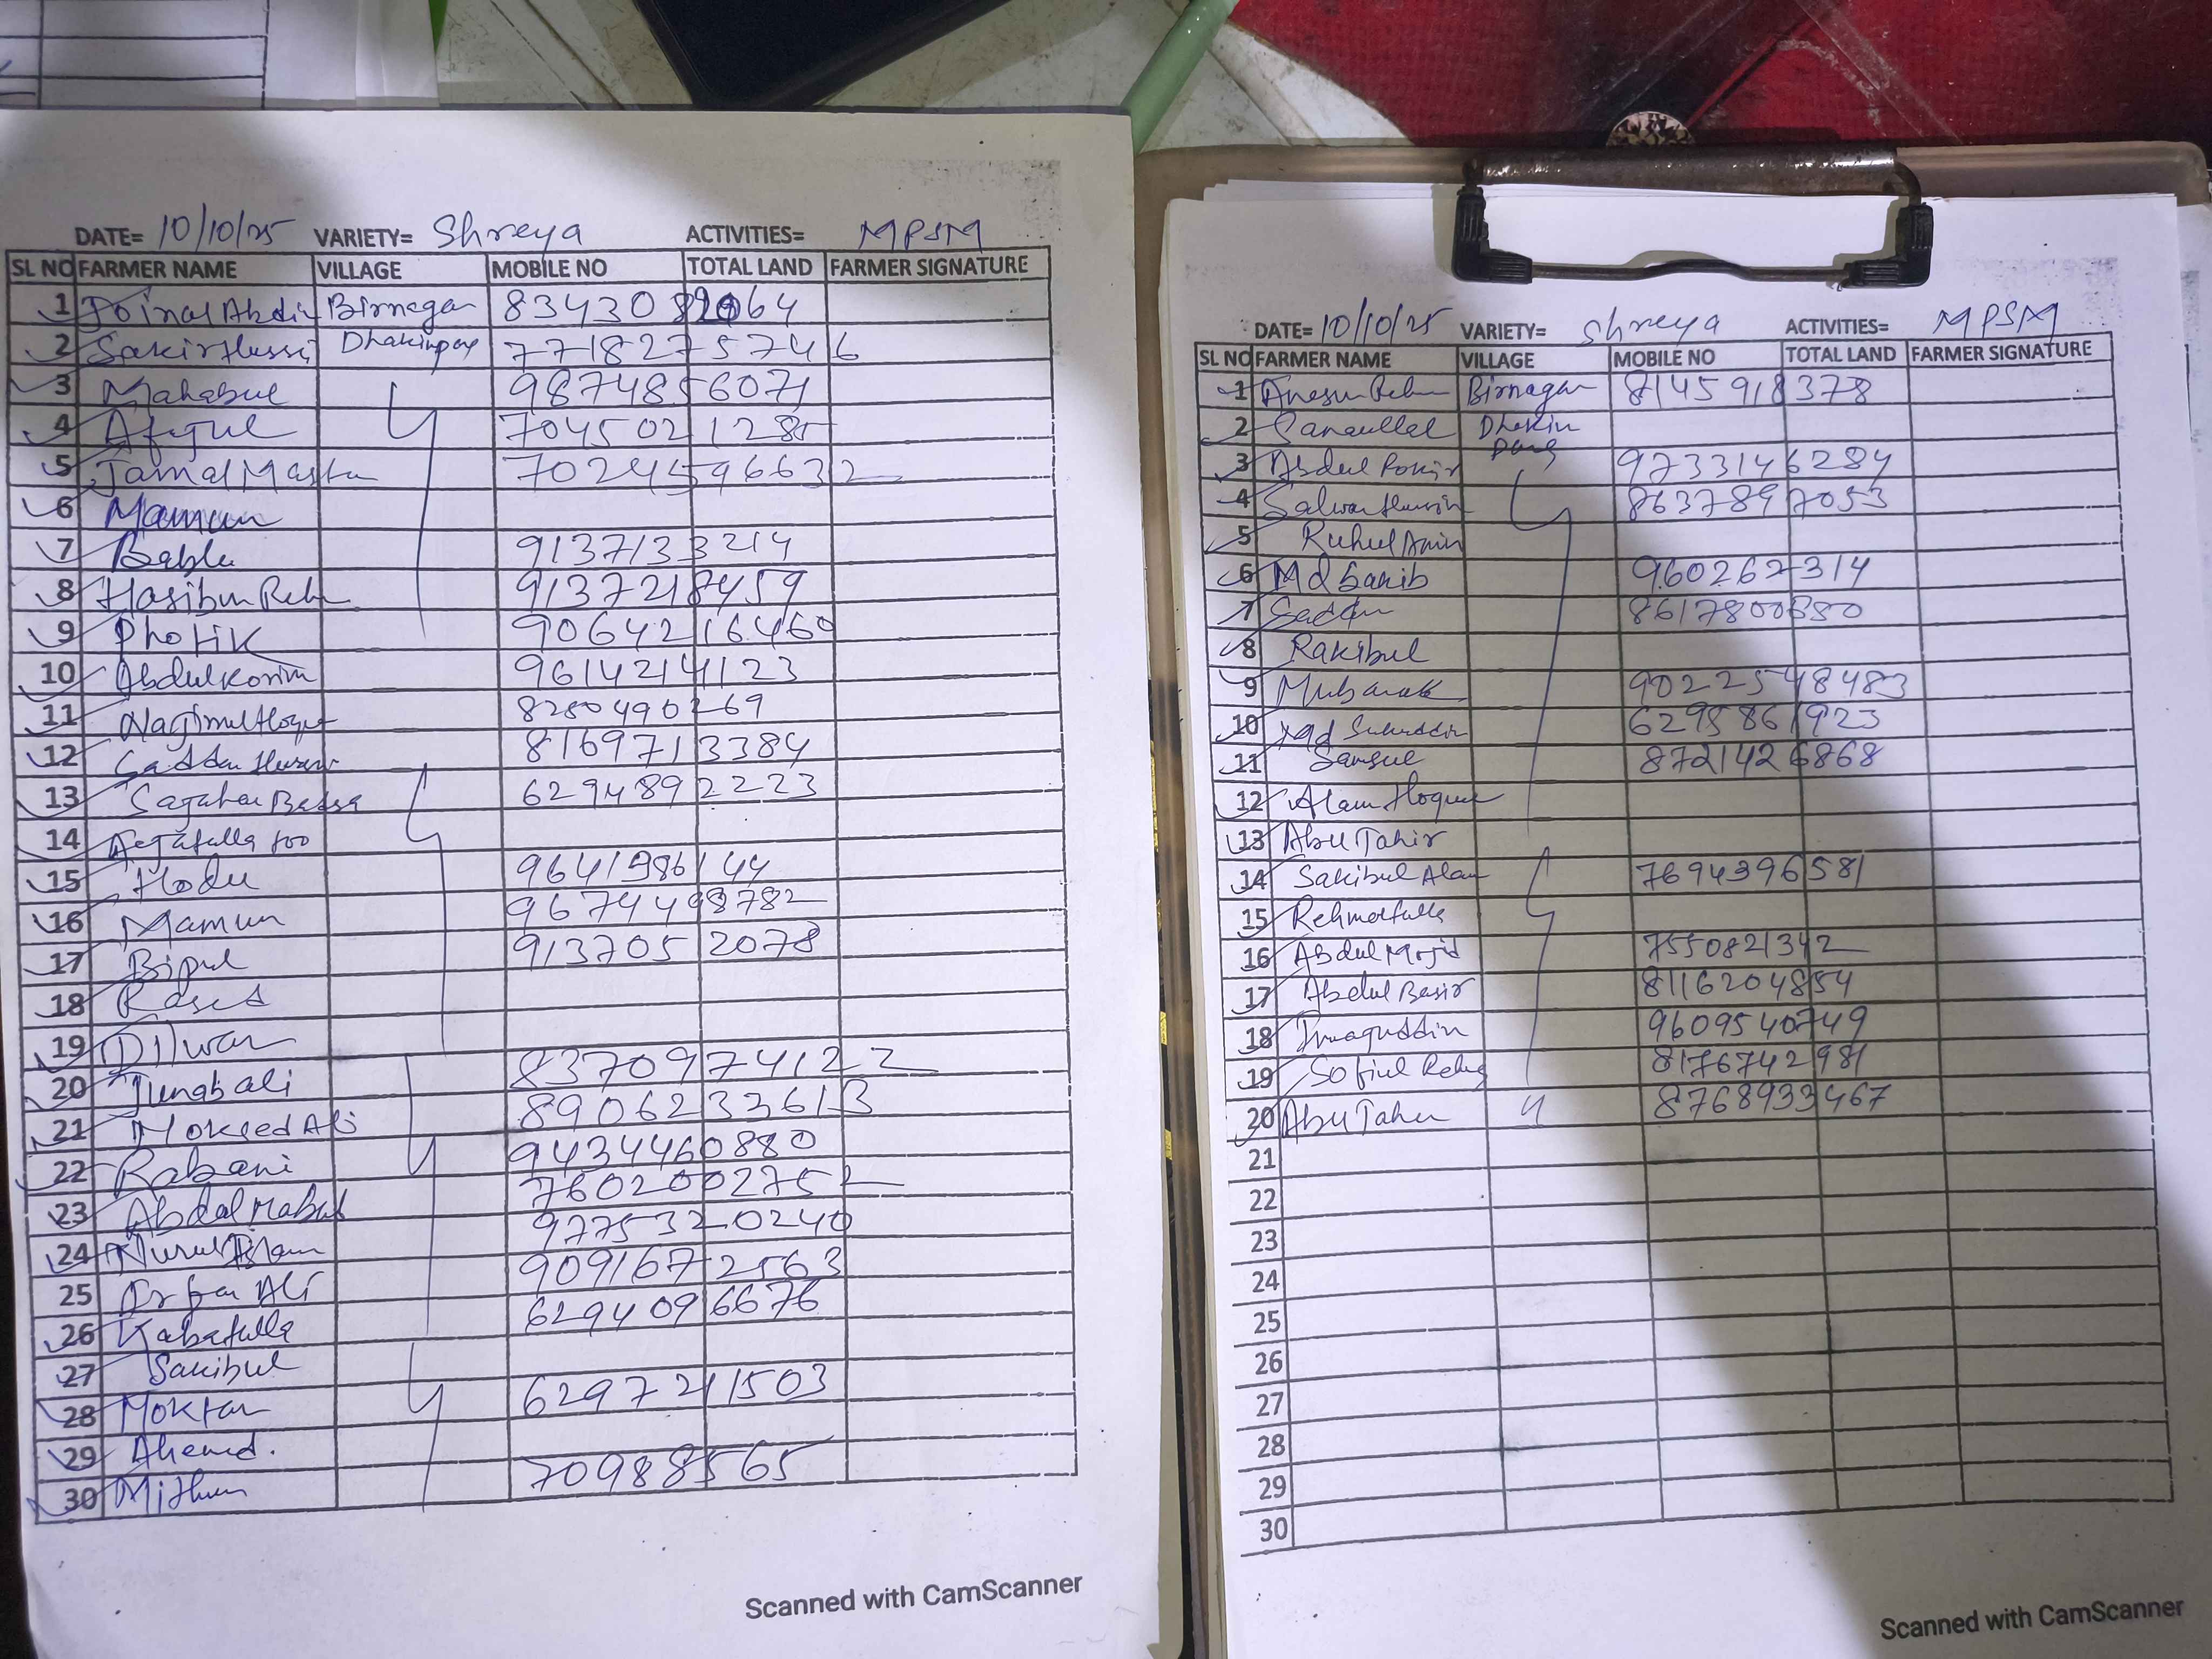 DATE= 10/10/25 VARIETY= Shreya ACTIVITIES= MPSM
SL NO FARMER NAME VILLAGE MOBILE NO TOTAL LAND FARMER SIGNATURE
1 Joinal Abdin Birnagar
2 Sakir Hussi Dhakinpara 7718275746
3 Mahabul 9874856071
4 Afijul 7045021285
5 Jamal Mastu 7024596632
6 Mamun
7 Bablu 9137133214
8 Hasibur Rehn 9137218459
9 Photik 9064216460
10 Abdul Korim 9614214123
11 Najimul Hoque 8250490269
12 Saddam Hussen 8169713384
13 Sajahan Badsa 6294892223
14
15 Hodu 9641986144
16 Mamun 9674498782
17 Bipul 9137052078
18 Rased
19 Dilwar
20 Junab ali 8370974122
21 Moksed Ali 8906233613
22 Rabani 9434460880
23 Abdal Mabud 7602002752
24 Nurul Islam 9775320240
25 Irfan Ali 9091672563
26 Kabatulla 6294096676
27 Sakibul
28 Moktar 6297211503
29 Ahemd.
30 Mithun 709885565
Scanned with CamScanner
DATE= 10/10/25 VARIETY= Shreya ACTIVITIES= MPSM
SL NO FARMER NAME VILLAGE MOBILE NO TOTAL LAND FARMER SIGNATURE
1 Anesur Rehn Birnagar 8145918378
2 Sanaullah Dhakin para
3 Abdul Pokir 9733146284
4 Salwar Hussin 8637897053
5 Ruhul Amin
6 Md Sakib 960262314
7 Saddu
8 Rakibul
9 Mubarak 9022548483
10 Md 6295861923
11 Samsul 8721426868
12 Alam Hoque
13 Abu Tahir
14 Sakibul Alam 7694396581
15 Rehmatulla
16 Abdul Mojid 7550821342
17 Abdul Basir 8116204854
18 9609540749
19 Sofiul Rehm 8176742981
20 Abu Taher 8768933467
21
22
23
24
25
26
27
28
29
30
Scanned with CamScanner